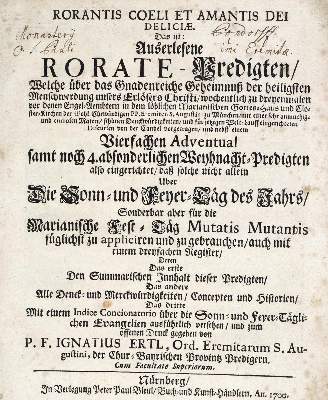 RORANTIS COELI ET AMANTIS DEI
DELICIÆ.
Das ist:
Außerlesene
RORATE-Predigten/
Welche über das Gnadenreiche Geheimnuß der heiligsten
Menschwerdung unsers Erlösers Christi/ wochentlich zu dreyenmalen
vor denen Engel-Aembtern in dem löblichen Marianischen Gottes-Haus und Clo-
ster-Kirchen der Wohl-Ehrwürdigen PP. Eremiten S. Augustin zu München/ mit einer sehr anmuthig-
und curiosen Materi/ schönen Denckwürdigkeiten/ und für jetzigen Welt-Lauff eingerichteten
Discursen von der Cantzel vorgetragen/ und nebst einem
Vierfachen Adventual
samt noch 4. absonderlichen Weyhnacht-Predigten
also eingerichtet/ daß solche nicht allein
Uber
Die Sonn- und Feyer-Täg des Jahrs/
Sonderbar aber für die
Marianische Fest-Täg Mutatis Mutantis
füglichst zu appliciren und zu gebrauchen/ auch mit
einem dreyfachen Register/
Deren
Das erste
Den Summarischen Innhalt dieser Predigten/
Das andere
Alle Denck- und Merckwürdigkeiten/ Concepten und Historien/
Das Dritte
Mit einem Indice Concionatorio über die Sonn- und Feyer-Tägli-
chen Evangelien ausführlich versehen/ und zum
offenen Druck gegeben von
P. F. IGNATIUS ERTL, Ord. Eremitarum S. Au-
gustini, der Chur-Bayrischen Provintz Predigern.
Cum Facultate Superiorum.
Nürnberg/
In Verlegung Peter Paul Bleul/ Buch- und Kunst-Händlern. An. 1700.